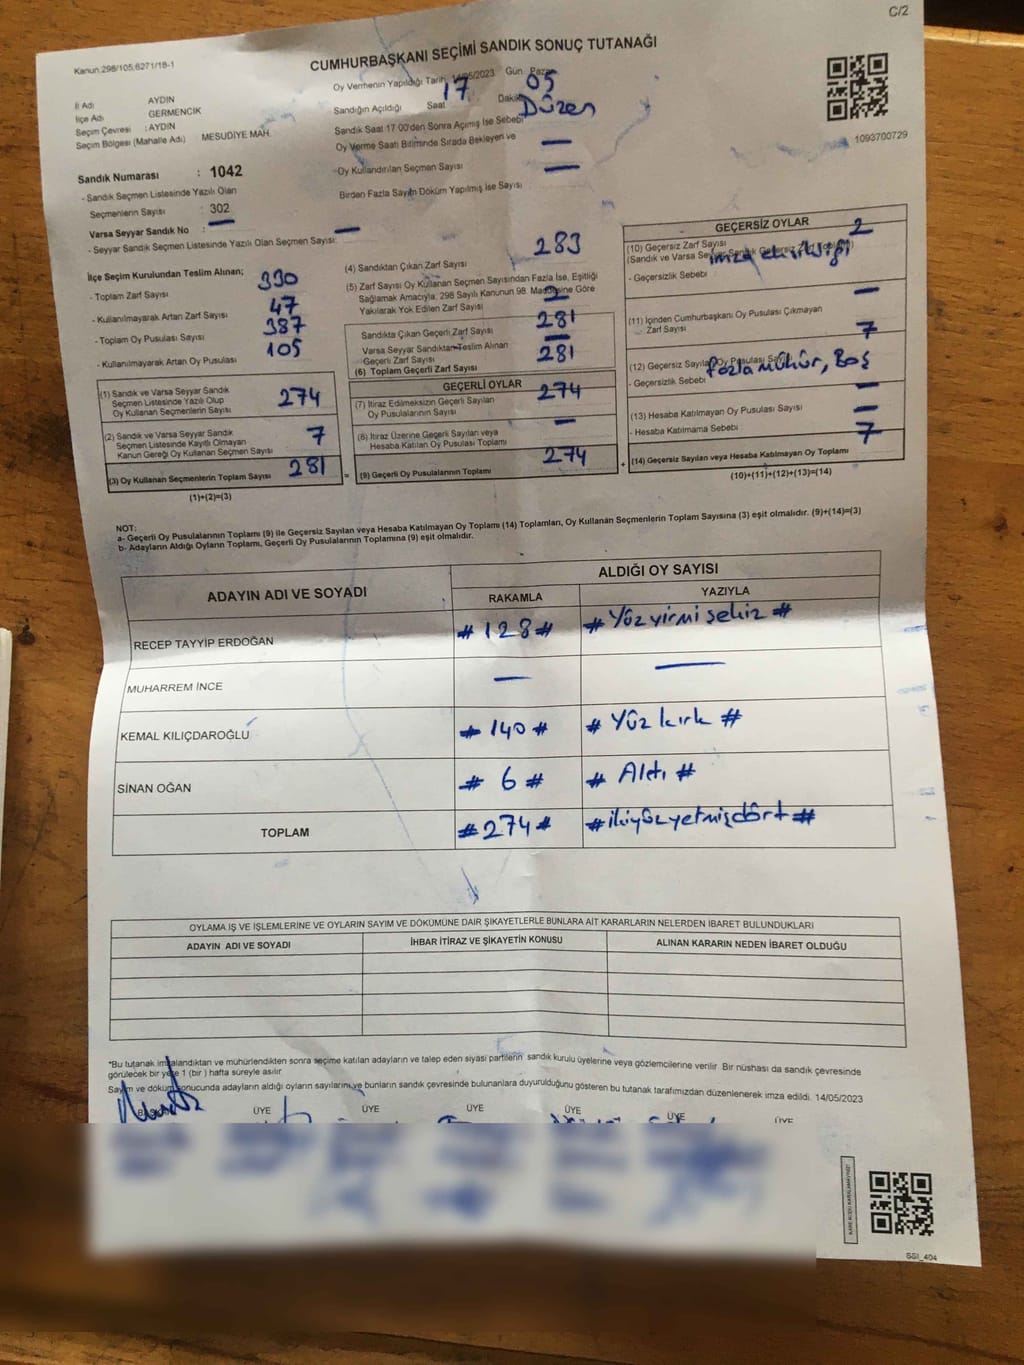 C/2
Kanun 298/105,6271/18-1
CUMHURBAŞKANI SEÇİMİ SANDIK SONUÇ TUTANAĞI
Oy Vermenin Yapıldığı Tarih 14/05/2023 Gün Pazar
İl Adı AYDIN
İlçe Adı GERMENCİK
Seçim Çevresi : AYDIN
Seçim Bölgesi (Mahalle Adı) MESUDİYE MAH.
Sandığın Açıldığı Saat 17 Dakika 05
Sandık Saat 17 00'den Sonra Açımış İse Sebebi Düzen
Oy Verme Saati Bitiminde Sırada Bekleyen ve
Oy Kullandırılan Seçmen Sayısı —
Birden Fazla Sayım Döküm Yapılmış İse Sayısı —
1093700729
Sandık Numarası : 1042
- Sandık Seçmen Listesinde Yazılı Olan
Seçmenlerin Sayısı : 302
Varsa Seyyar Sandık No : —
- Seyyar Sandık Seçmen Listesinde Yazılı Olan Seçmen Sayısı: —
İlçe Seçim Kurulundan Teslim Alınan;
- Toplam Zarf Sayısı 330
- Kullanılmayarak Artan Zarf Sayısı 47
- Toplam Oy Pusulası Sayısı 387
- Kullanılmayarak Artan Oy Pusulası 105
(1) Sandık ve Varsa Seyyar Sandık
Seçmen Listesinde Yazılı Olup
Oy Kullanan Seçmenlerin Sayısı 274
(2) Sandık ve Varsa Seyyar Sandık
Seçmen Listesinde Kayıtlı Olmayan
Kanun Gereği Oy Kullanan Seçmen Sayısı 7
(3) Oy Kullanan Seçmenlerin Toplam Sayısı 281
(1)+(2)=(3)
(4) Sandıktan Çıkan Zarf Sayısı 283
(5) Zarf Sayısı Oy Kullanan Seçmen Sayısından Fazla İse, Eşitliği
Sağlamak Amacıyla, 298 Sayılı Kanunun 98. Maddesine Göre
Yakılarak Yok Edilen Zarf Sayısı 2
Sandıkta Çıkan Geçerli Zarf Sayısı 281
Varsa Seyyar Sandıktan Teslim Alınan
Geçerli Zarf Sayısı —
(6) Toplam Geçerli Zarf Sayısı 281
GEÇERLİ OYLAR
(7) İtiraz Edilmeksizin Geçerli Sayılan
Oy Pusulalarının Sayısı 274
(8) İtiraz Üzerine Geçerli Sayılan veya
Hesaba Katılan Oy Pusulası Toplamı —
= (9) Geçerli Oy Pusulalarının Toplamı 274
GEÇERSİZ OYLAR
(10) Geçersiz Zarf Sayısı 2
(Sandık ve Varsa Seyyar Sandık Geçersiz Zarf Toplamı)
- Geçersizlik Sebebi imza eksikliği
(11) İçinden Cumhurbaşkanı Oy Pusulası Çıkmayan
Zarf Sayısı —
(12) Geçersiz Sayılan Oy Pusulası Sayısı 7
- Geçersizlik Sebebi fazla mühür, Boş
(13) Hesaba Katılmayan Oy Pusulası Sayısı —
- Hesaba Katılmama Sebebi —
+ (14) Geçersiz Sayılan veya Hesaba Katılmayan Oy Toplamı 7
(10)+(11)+(12)+(13)=(14)
NOT:
a- Geçerli Oy Pusulalarının Toplamı (9) ile Geçersiz Sayılan veya Hesaba Katılmayan Oy Toplamı (14) Toplamları, Oy Kullanan Seçmenlerin Toplam Sayısına (3) eşit olmalıdır. (9)+(14)=(3)
b- Adayların Aldığı Oyların Toplamı, Geçerli Oy Pusulalarının Toplamına (9) eşit olmalıdır.
ADAYIN ADI VE SOYADI ALDIĞI OY SAYISI
RAKAMLA YAZIYLA
RECEP TAYYİP ERDOĞAN # 128 # # Yüz yirmi sekiz #
MUHARREM İNCE — —
KEMAL KILIÇDAROĞLU # 140 # # Yüz kırk #
SİNAN OĞAN # 6 # # Altı #
TOPLAM # 274 # # ikiyüz yetmiş dört #
OYLAMA İŞ VE İŞLEMLERİNE VE OYLARIN SAYIM VE DÖKÜMÜNE DAİR ŞİKAYETLERLE BUNLARA AİT KARARLARIN NELERDEN İBARET BULUNDUKLARI
ADAYIN ADI VE SOYADI İHBAR İTİRAZ VE ŞİKAYETİN KONUSU ALINAN KARARIN NEDEN İBARET OLDUĞU
*Bu tutanak imzalandıktan ve mühürlendikten sonra seçime katılan adayların ve talep eden siyasi partilerin sandık kurulu üyelerine veya gözlemcilerine verilir Bir nüshası da sandık çevresinde
görülecek bir yere 1 (bir ) hafta süreyle asılır
Sayım ve döküm sonucunda adayların aldığı oyların sayılarını ve bunların sandık çevresinde bulunanlara duyurulduğunu gösteren bu tutanak tarafımızdan düzenlenerek imza edildi. 14/05/2023
ÜYE ÜYE ÜYE ÜYE ÜYE ÜYE
SSI_404